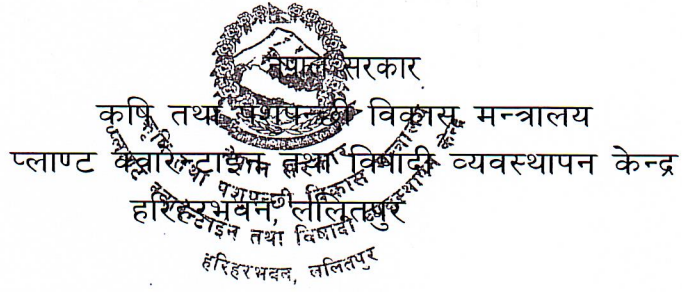 नेपाल सरकार
कृषि तथा पशुपन्छी विकास मन्त्रालय
प्लाण्ट क्वारेन्टाइन तथा विषादी व्यवस्थापन केन्द्र
हरिहरभवन, ललितपुर
नेपाल सरकार
कृषि तथा पशुपन्छी विकास मन्त्रालय
प्लाण्ट क्वारेन्टाइन तथा विषादी व्यवस्थापन केन्द्र
हरिहरभवन, ललितपुर